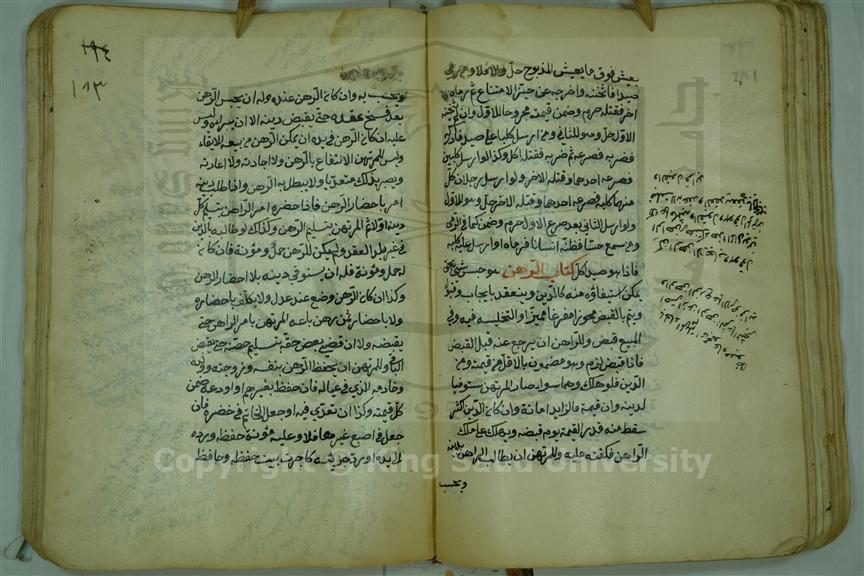 يعيش فوق ما يعيش المذبوح حل والا فلا ومن رمى
صيدا فاثخنه واخرجه عن حيز الامتناع ثم رماه
اخر فقتله حرم وضمن قيمته مجروحا للاول وان لم يثخنه
الاول حل وهو للثاني ومن ارسل كلبا على صيد فادركه
فضربه فصرعه ثم ضربه فقتله اكل وكذا لو ارسل كلبين
فصرعه احدهما وقتله الاخر ولو ارسل رجلان كل
منهما كلبه فصرعه احدهما وقتله الاخر حل وهو للاول
ولو ارسل الثاني بعد صرع الاول حرم وضمن كما في الرمي
ومن سمع حسا فظنه انسانا فرماه او ارسل عليه كلبه
فاذا هو صيد اكل كتاب الرهن هو حبس شيء بحق
يمكن استيفاؤه منه كالدين وينعقد بايجاب وقبول
ويتم بالقبض محوزا مفرغا مميزا والتخلية فيه وفي
المبيع قبض وللراهن ان يرجع عنه قبل القبض
فاذا قبض لزم وهو مضمون بالاقل من قيمته ومن
الدين فلو هلك وهما سواء صار المرتهن مستوفيا
لدينه وان قيمته فالزايد امانة وان كان الدين اكثر
سقط منه قدر القيمة يوم قبضه ويهلك على ملك
الراهن فكفنه عليه وللمرتهن ان يطالب الراهن بدينه
ويحبسه
١٨٣
ويحبسه به وان كان الرهن عنده وله ان يحبس الرهن
بعد فسخ عقده حتى يقبض دينه الا ان يبراه وليس
عليه ان كان الرهن في يده ان يمكن الراهن من بيعه للايفاء
وليس للمرتهن الانتفاع بالرهن ولا اجارته ولا اعارته
ويصير بذلك متعديا ولا يبطل به الرهن واذا طلب دينه
امر باحضار الرهن فاذا حضره امر الراهن بتسليم كل
دينه اولا ثم المرتهن بتسليم الرهن وكذلك لو طالبه بالدين
في غير بلد العقد ولم يكن للرهن حمل ومؤنة فان كان
له حمل ومؤنة فله ان يستوفي دينه بلا احضار الرهن
وكذا ان كان الرهن وضع عند عدل ولا يكلف باحضاره
ولا باحضار ثمن رهن باعه المرتهن بامر الراهن حتى
يقبضه ولا ان قضى بعض حقه بتسليم حصته حتى يقبض
الباقي وللمرتهن ان يحفظ الرهن بنفسه وزوجته وولده
وخادمه الذي في عياله فان حفظه بغيرهم او اودعه ضمن
كل قيمته وكذا ان تعدى فيه او جعل الخاتم في خنصره فان
جعل في اصبع غيرها فلا وعليه مؤنة حفظه ورده
الى يده او رد جزء منه كاجرة بيت حفظه وحافظه
Copyright © King Saud University